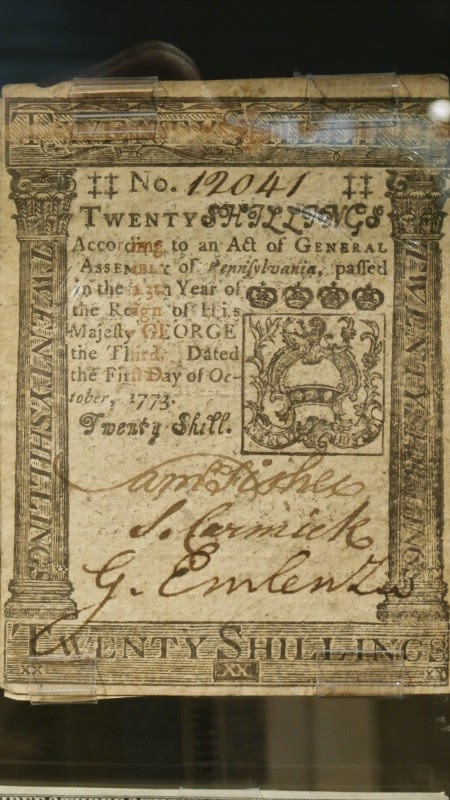 TWENTY SHILLINGS
No. 12041
TWENTY SHILLINGS
According to an Act of GENERAL
ASSEMBLY of Pennsylvania, passed
in the 13th Year of
the Reign of His
Majesty GEORGE
the Third. Dated
the First Day of Oc-
tober, 1773.
Twenty Shill.
TWENTY SHILLING
TWENTY SHILLING
Sam Fisher
S. Cormick
G. Emlen
TWENTY SHILLINGS
XX XX XX